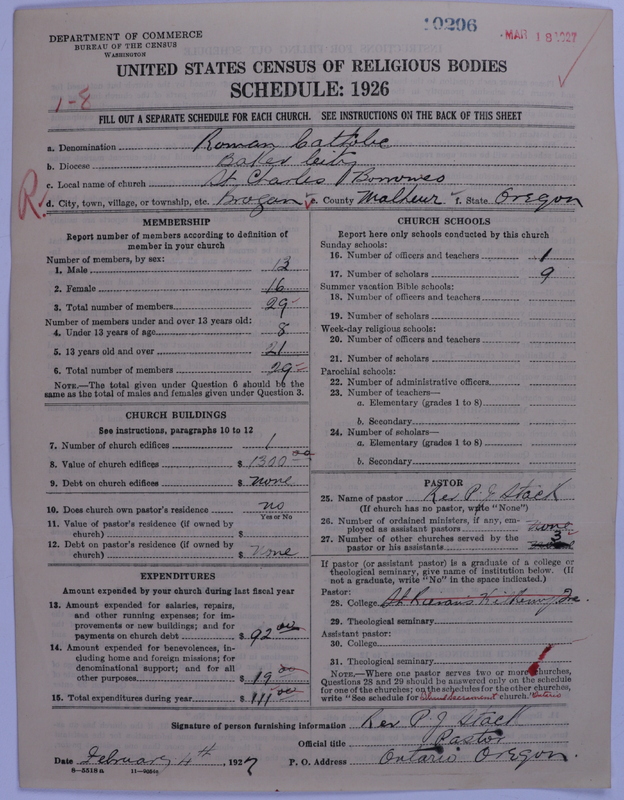 DEPARTMENT OF COMMERCE
BUREAU OF THE CENSUS
WASHINGTON
10206
MAR 18 1927
1-E
UNITED STATES CENSUS OF RELIGIOUS BODIES
SCHEDULE: 1926
FILL OUT A SEPARATE SCHEDULE FOR EACH CHURCH. SEE INSTRUCTIONS ON THE BACK OF THIS SHEET
a. Denomination Roman Catholic
b. Diocese Baker City
c. Local name of church St Charles Borromeo
R.
d. City, town, village, or township, etc. Brogan e. County Malheur f. State Oregon
MEMBERSHIP
Report number of members according to definition of
member in your church
Number of members, by sex:
1. Male 13
2. Female 16
3. Total number of members 29
Number of members under and over 13 years old:
4. Under 13 years of age 8
5. 13 years old and over 21
6. Total number of members 29
NOTE.—The total given under Question 6 should be the
same as the total of males and females given under Question 3.
CHURCH BUILDINGS
See instructions, paragraphs 10 to 12
7. Number of church edifices 1
8. Value of church edifices $ 1300 00
9. Debt on church edifices $ none
10. Does church own pastor's residence no
Yes or No
11. Value of pastor's residence (if owned by
church) $
12. Debt on pastor's residence (if owned by
church) $ none
EXPENDITURES
Amount expended by your church during last fiscal year
13. Amount expended for salaries, repairs,
and other running expenses; for im-
provements or new buildings; and for
payments on church debt $ 92 00
14. Amount expended for benevolences, in-
cluding home and foreign missions; for
denominational support; and for all
other purposes $ 19 00
15. Total expenditures during year $ 111 00
CHURCH SCHOOLS
Report here only schools conducted by this church
Sunday schools:
16. Number of officers and teachers 1
17. Number of scholars 9
Summer vacation Bible schools:
18. Number of officers and teachers
19. Number of scholars
Week-day religious schools:
20. Number of officers and teachers
21. Number of scholars
Parochial schools:
22. Number of administrative officers
23. Number of teachers—
a. Elementary (grades 1 to 8)
b. Secondary
24. Number of scholars—
a. Elementary (grades 1 to 8)
b. Secondary
PASTOR
25. Name of pastor Rev P. J. Stack
(If church has no pastor, write "None")
26. Number of ordained ministers, if any, em-
ployed as assistant pastors none
27. Number of other churches served by the
pastor or his assistants 3
If pastor (or assistant pastor) is a graduate of a college or
theological seminary, give name of institution below. (If
not a graduate, write "No" in the space indicated.)
Pastor:
28. College St. Kieran's Kilkenny Ire.
29. Theological seminary
Assistant pastor:
30. College
31. Theological seminary
NOTE.—Where one pastor serves two or more churches,
Questions 28 and 29 should be answered only on the schedule
for one of the churches; on the schedules for the other churches,
write "See schedule for Blessed Sacrament church." Ontario
Signature of person furnishing information Rev P. J. Stack
Official title Pastor
Date February 4th, 1927 P. O. Address Ontario Oregon.
8—5518a